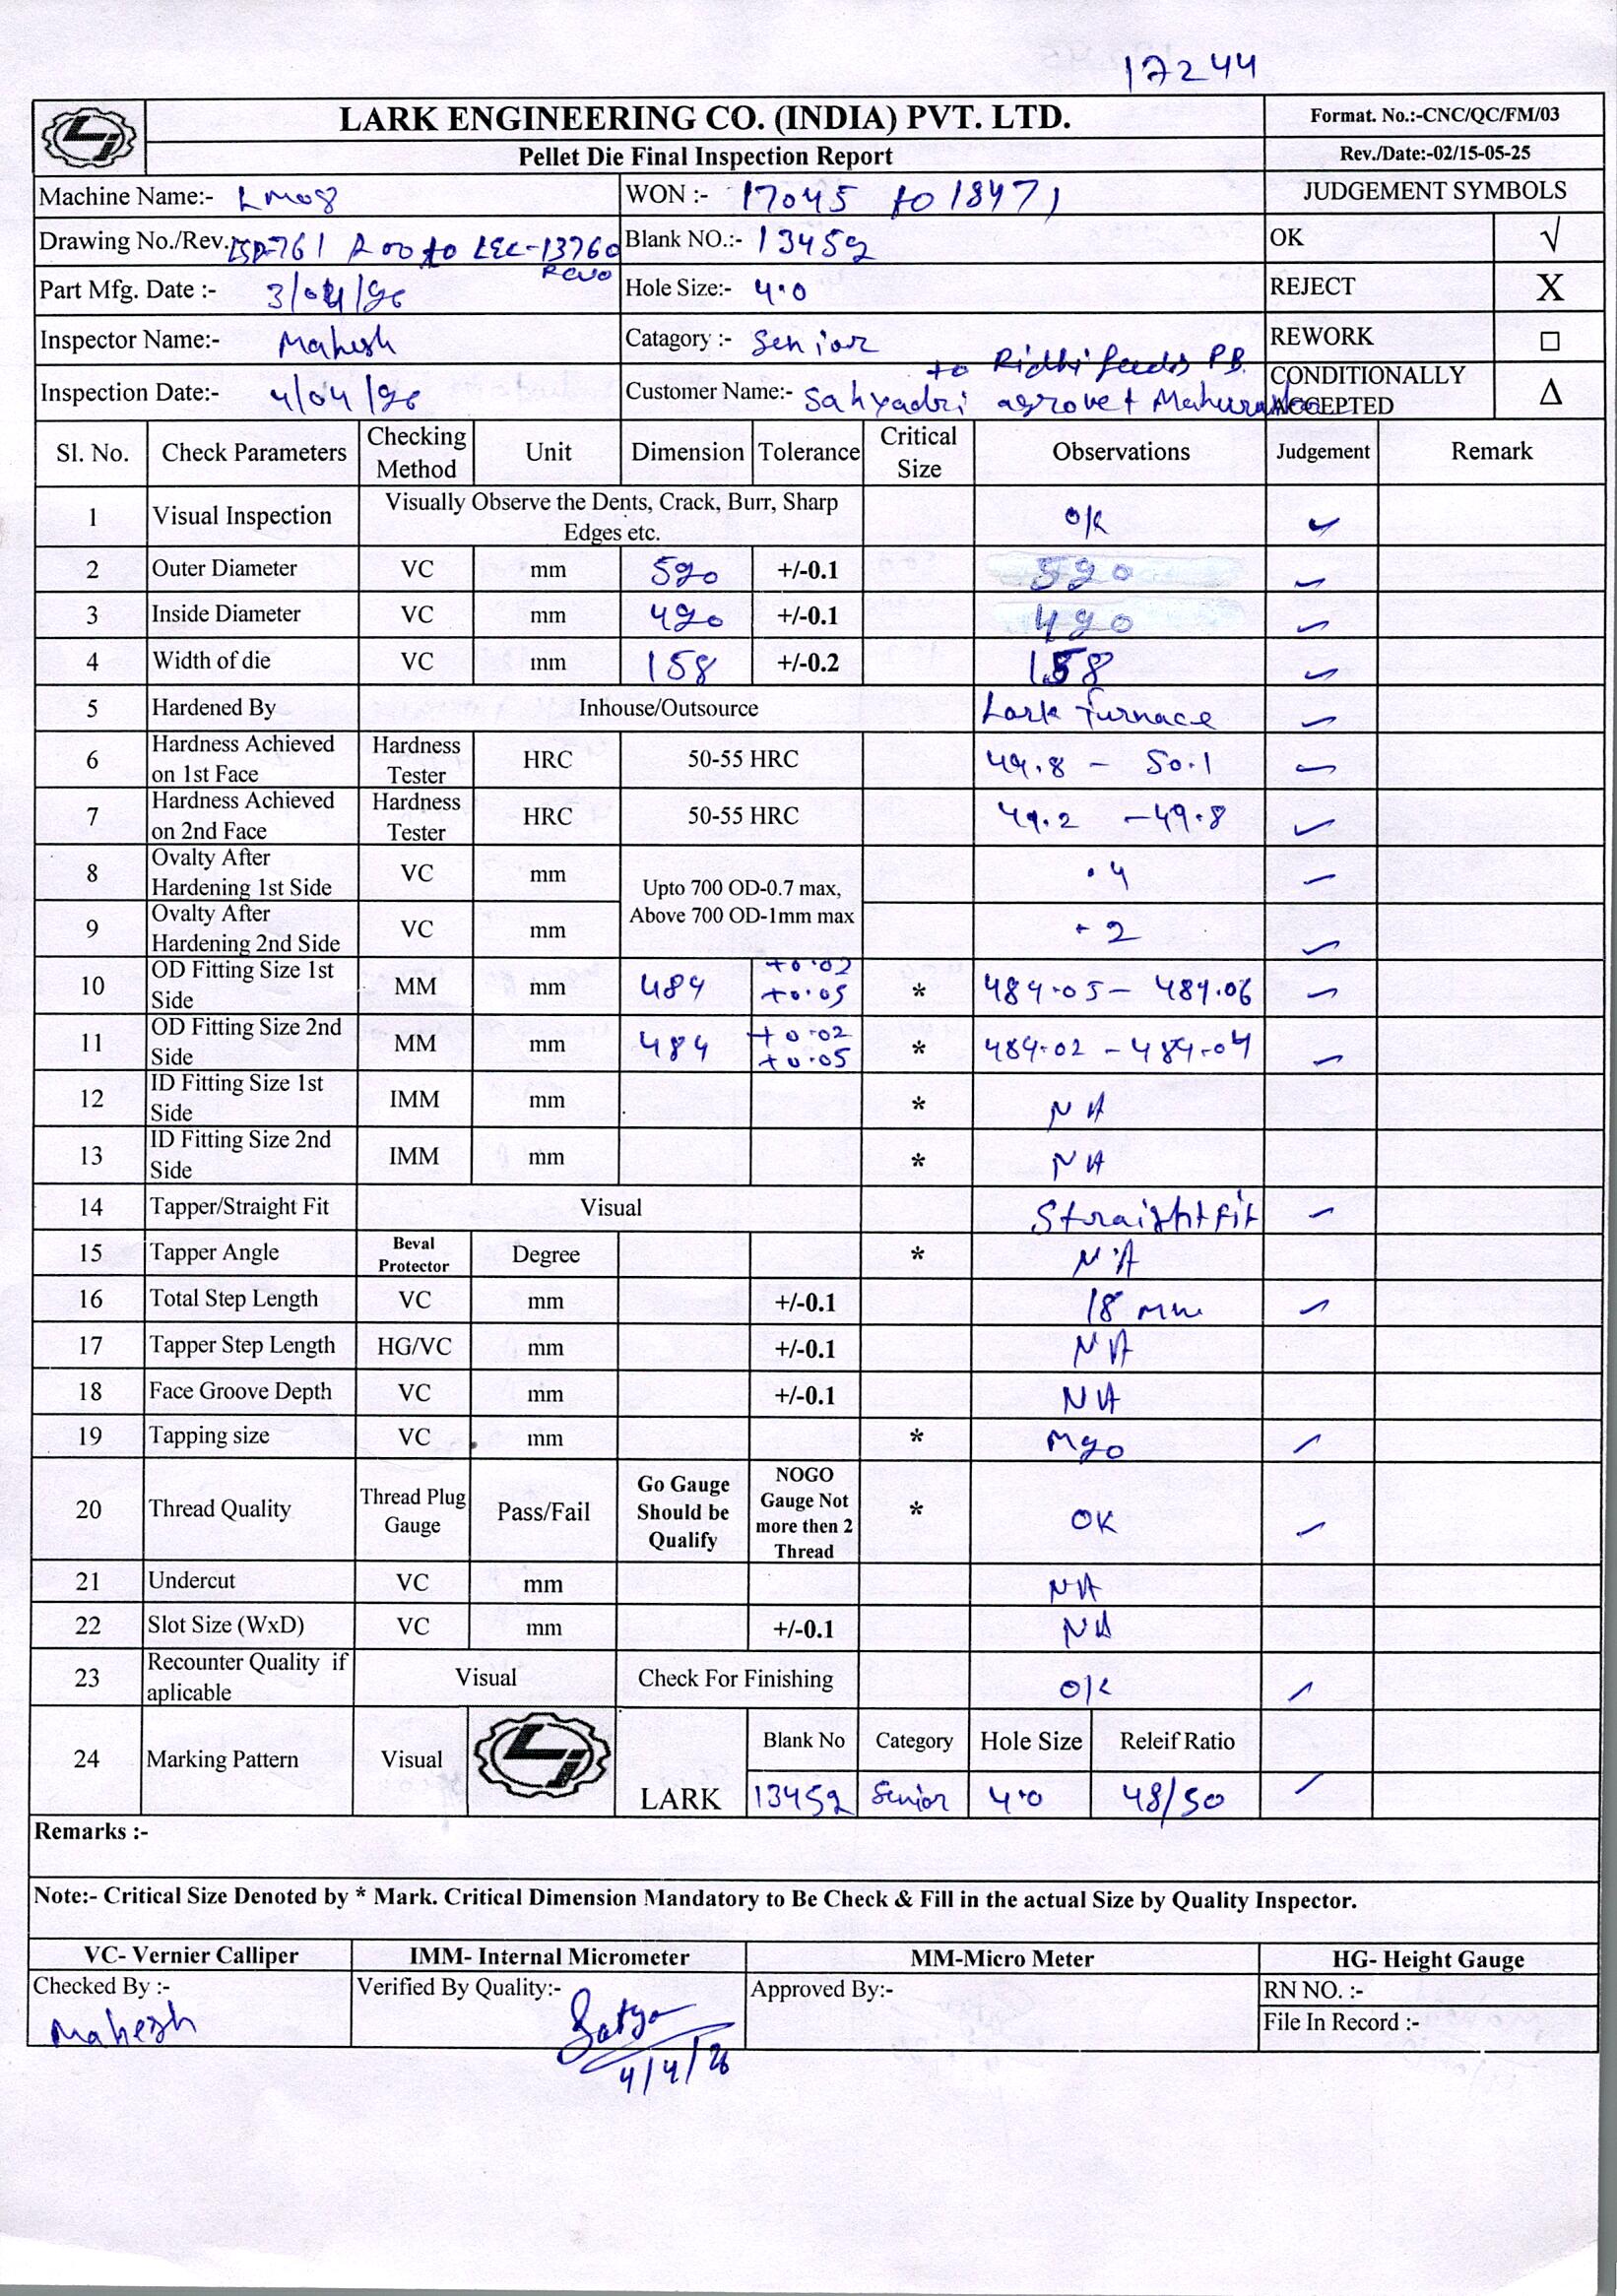 17244
LARK ENGINEERING CO. (INDIA) PVT. LTD.
Pellet Die Final Inspection Report
Format. No.:-CNC/QC/FM/03
Rev./Date:-02/15-05-25
Machine Name:- LM08
WON :- 17045 to 18471
JUDGEMENT SYMBOLS
Drawing No./Rev. 761 R00 to LEC-13760 Rev0
Blank NO.:- 13459
OK √
Part Mfg. Date :- 3/04/26
Hole Size:- 4.0
REJECT X
Inspector Name:- Mahesh
Catagory :- Senior
REWORK □
Inspection Date:- 4/04/26
to Ridhi feeds P.B.
Customer Name:- Sahyadri agrovet
CONDITIONALLY ACCEPTED Δ
Sl. No. Check Parameters Checking Method Unit Dimension Tolerance Critical Size Observations Judgement Remark
1 Visual Inspection Visually Observe the Dents, Crack, Burr, Sharp Edges etc. OK ✓
2 Outer Diameter VC mm 590 +/-0.1 590 ✓
3 Inside Diameter VC mm 490 +/-0.1 490 ✓
4 Width of die VC mm 158 +/-0.2 158 ✓
5 Hardened By Inhouse/Outsource Lark furnace ✓
6 Hardness Achieved on 1st Face Hardness Tester HRC 50-55 HRC 49.8 - 50.1 ✓
7 Hardness Achieved on 2nd Face Hardness Tester HRC 50-55 HRC 49.2 - 49.8 ✓
8 Ovalty After Hardening 1st Side VC mm Upto 700 OD-0.7 max, Above 700 OD-1mm max .4 ✓
9 Ovalty After Hardening 2nd Side VC mm .2 ✓
10 OD Fitting Size 1st Side MM mm 484 +0.02 +0.05 * 484.05 - 484.06 ✓
11 OD Fitting Size 2nd Side MM mm 484 +0.02 +0.05 * 484.02 - 484.04 ✓
12 ID Fitting Size 1st Side IMM mm * NA
13 ID Fitting Size 2nd Side IMM mm * NA
14 Tapper/Straight Fit Visual Straight fit ✓
15 Tapper Angle Beval Protector Degree * NA
16 Total Step Length VC mm +/-0.1 18 mm ✓
17 Tapper Step Length HG/VC mm +/-0.1 NA
18 Face Groove Depth VC mm +/-0.1 NA
19 Tapping size VC mm * M20 ✓
20 Thread Quality Thread Plug Gauge Pass/Fail Go Gauge Should be Qualify NOGO Gauge Not more then 2 Thread * OK ✓
21 Undercut VC mm NA
22 Slot Size (WxD) VC mm +/-0.1 NA
23 Recounter Quality if aplicable Visual Check For Finishing OK ✓
24 Marking Pattern Visual LARK Blank No Category Hole Size Releif Ratio ✓
13459 Senior 4.0 48/50
Remarks :-
Note:- Critical Size Denoted by * Mark. Critical Dimension Mandatory to Be Check & Fill in the actual Size by Quality Inspector.
VC- Vernier Calliper IMM- Internal Micrometer MM-Micro Meter HG- Height Gauge
Checked By :- Mahesh
Verified By Quality:- Satya 4/4/26
Approved By:-
RN NO. :-
File In Record :-